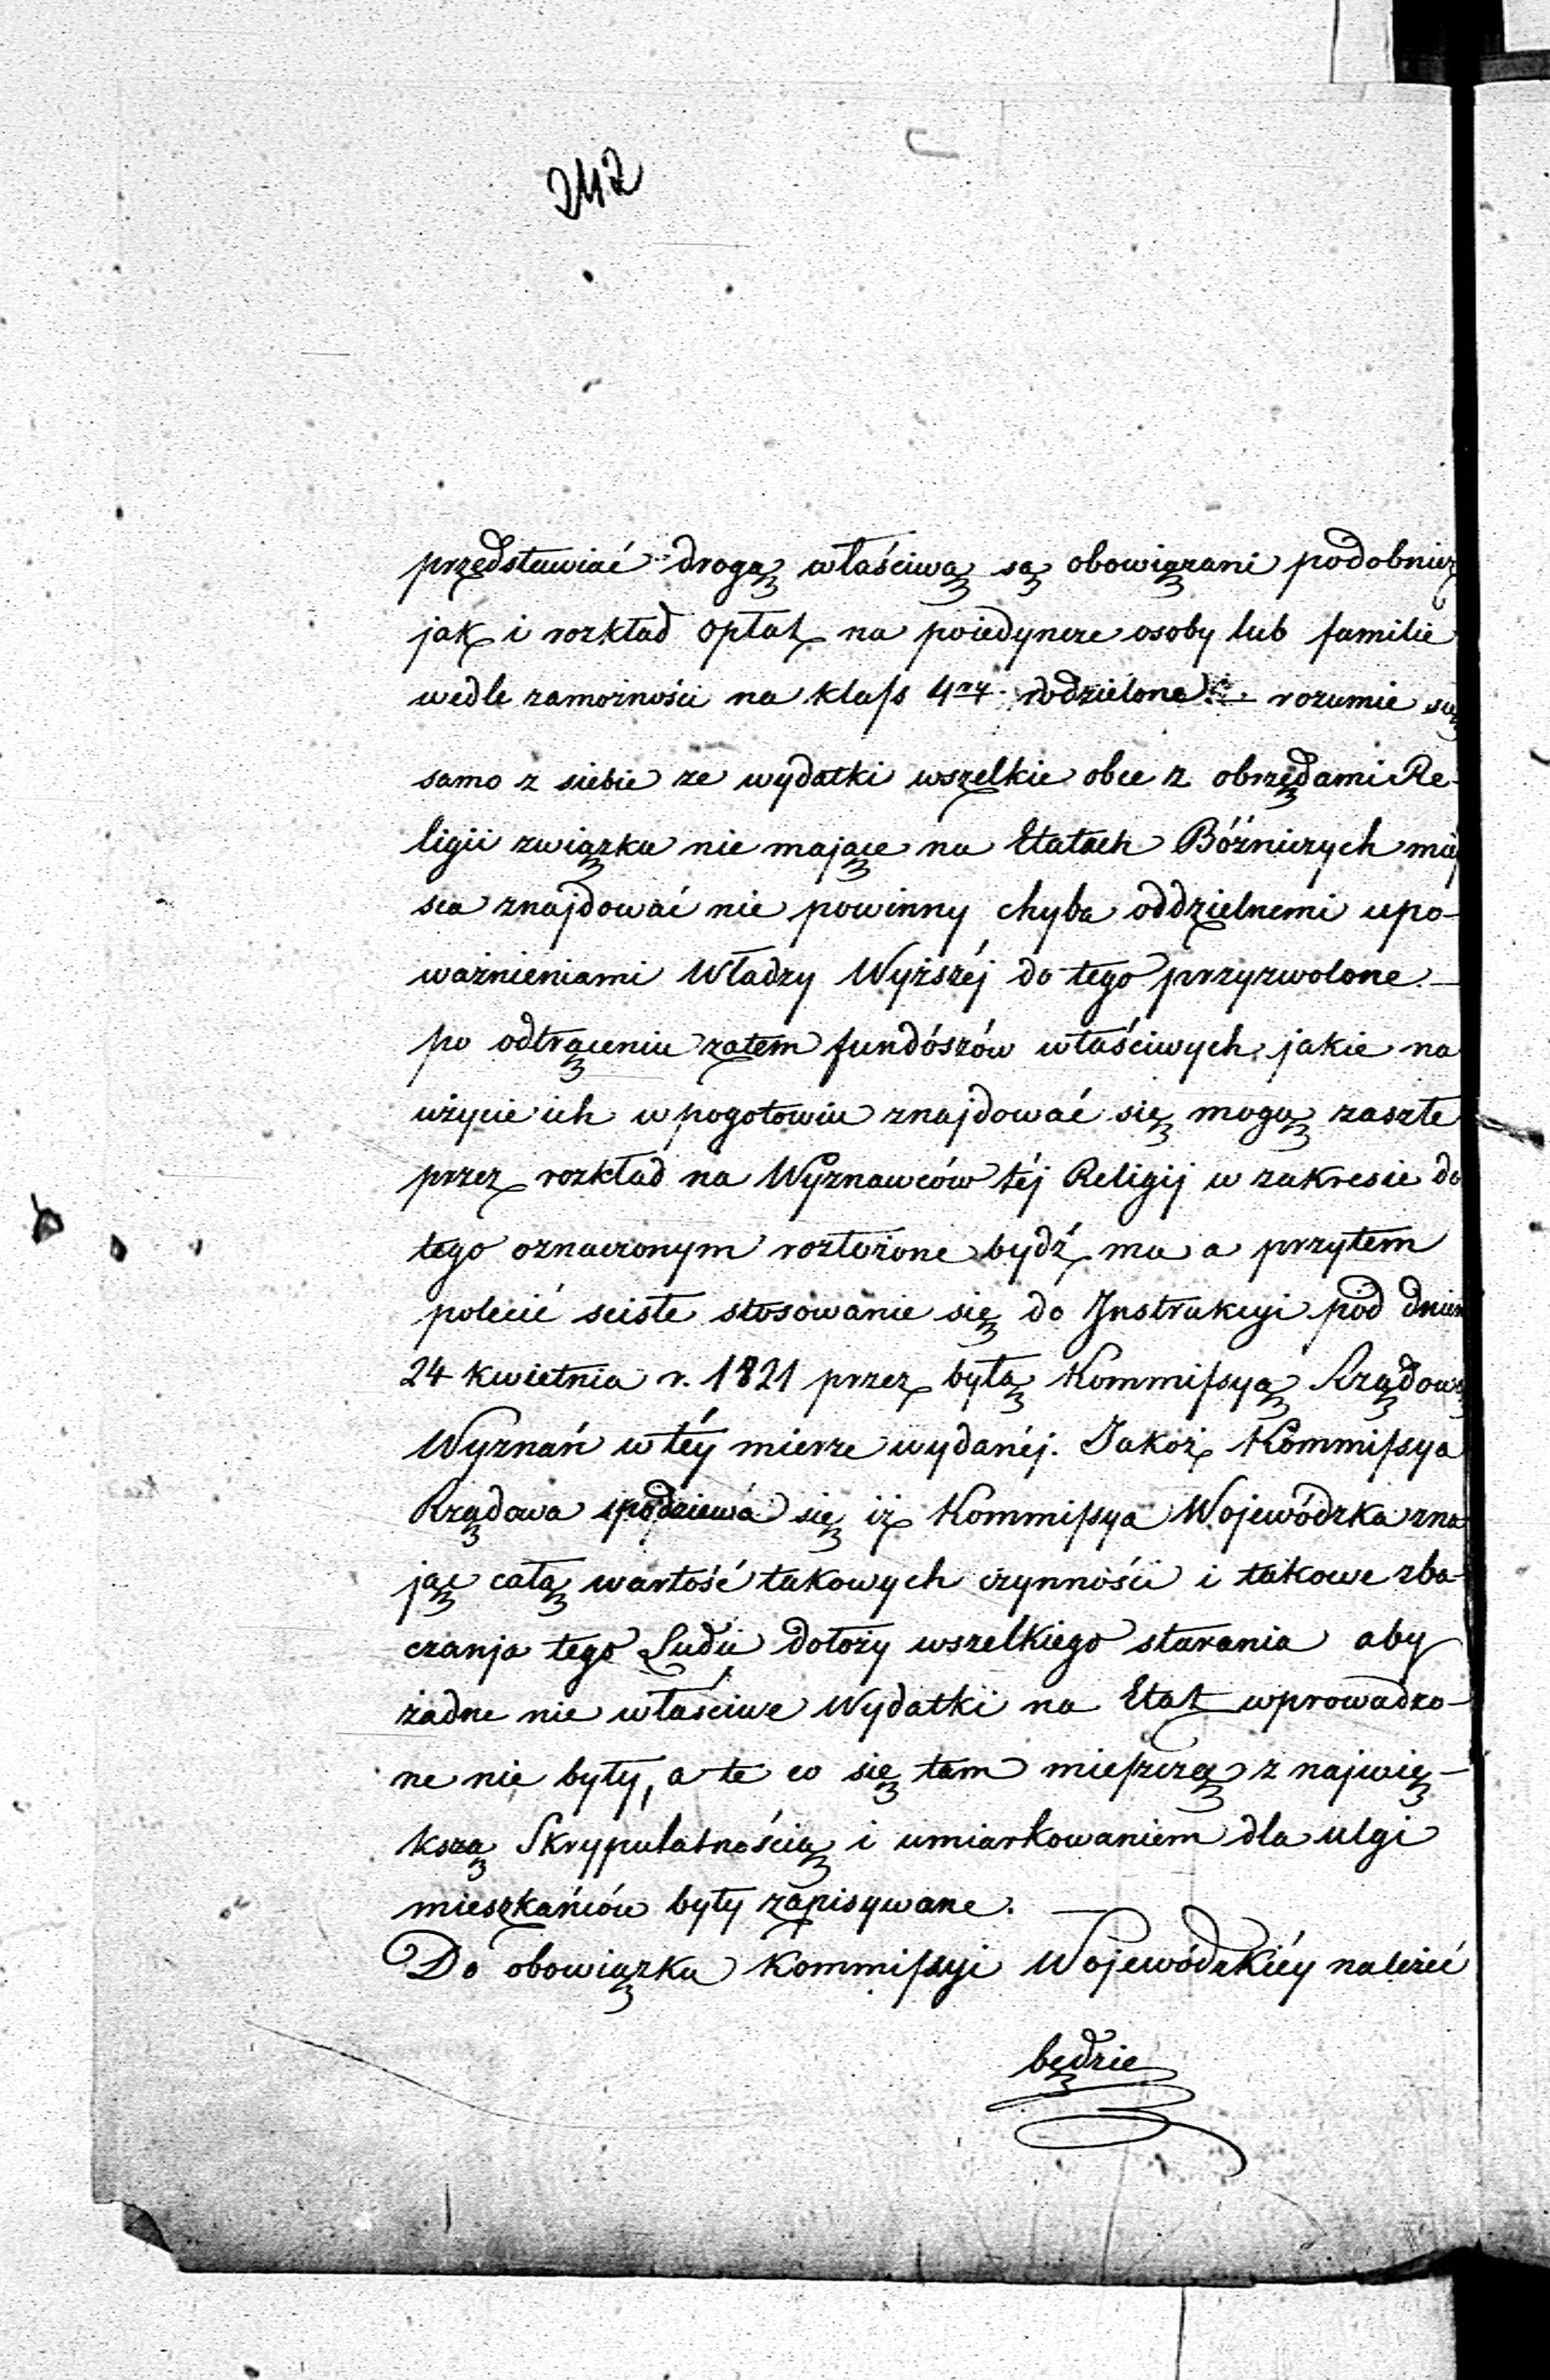 242
przedstawiać drogą właściwą są obowiązani podobnież
jak i rozkład opłat na poiedyncze osoby lub familie
wedle zamożności na klaſs 4ry podzielone. — rozumie się
samo z siebie ze wydatki wszelkie obce z obrzędami Re-
ligii związku nie mające na Etatach Bóżniczych miej
sca znajdować nie powinny chyba oddzielnemi upo-
ważnieniami Władzy Wyższéj do tego przyzwolone. —
po odtrąceniu zatem fundószów właściwych jakie na
użycie ich w pogotowiu znajdować się mogą zaszłe
przez rozkład na Wyznawców téj Religij w zakresie do
tego oznaczonym rozłożone bydź ma a przytem
polecić sciste stosowanie się do Instrukcyi pod dniem
24 kwietnia r. 1821 przez byłą Kommiſsyą Rządową
Wyznań w téy mierze wydanéj. Jakoż Kommiſsya
Rządowa spodziewa się iż Kommiſsya Wojewódzka zna
jąc całą wartość takowych czynnośći i takowe zba-
czanja tego Ludu dołoży wszelkiego starania aby
żadne nie właściwe Wydatki na Etat wprowadzo-
ne nie były, a te co się tam mieſzczą z najwię-
kszą Skrypulatnością i umiarkowaniem dla ulgi
mieszkańców były zapisywane. —
Do obowiązku Kommiſsyi Wojewódzkiéy należeć
będzie